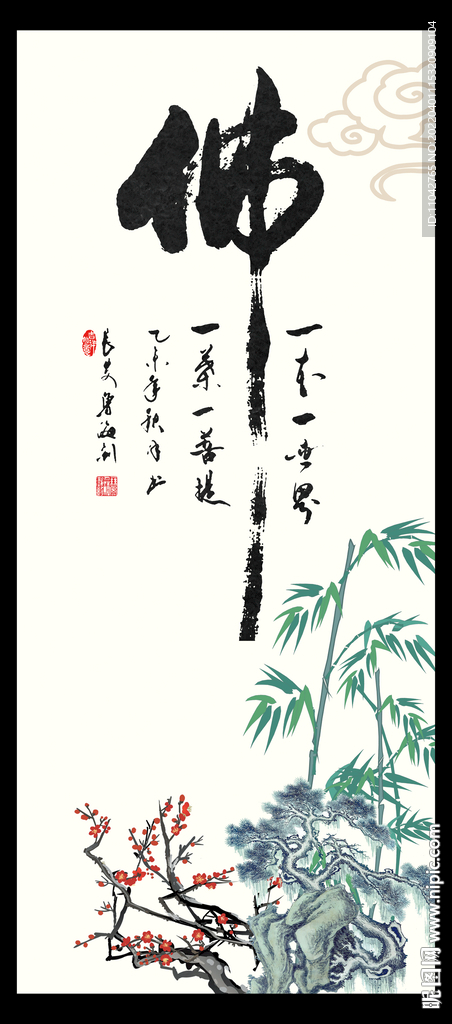 佛
一花一世界
一葉一菩提
乙未年秋月書
ID:11042765 NO:20220401115320909104
昵图网 www.nipic.com